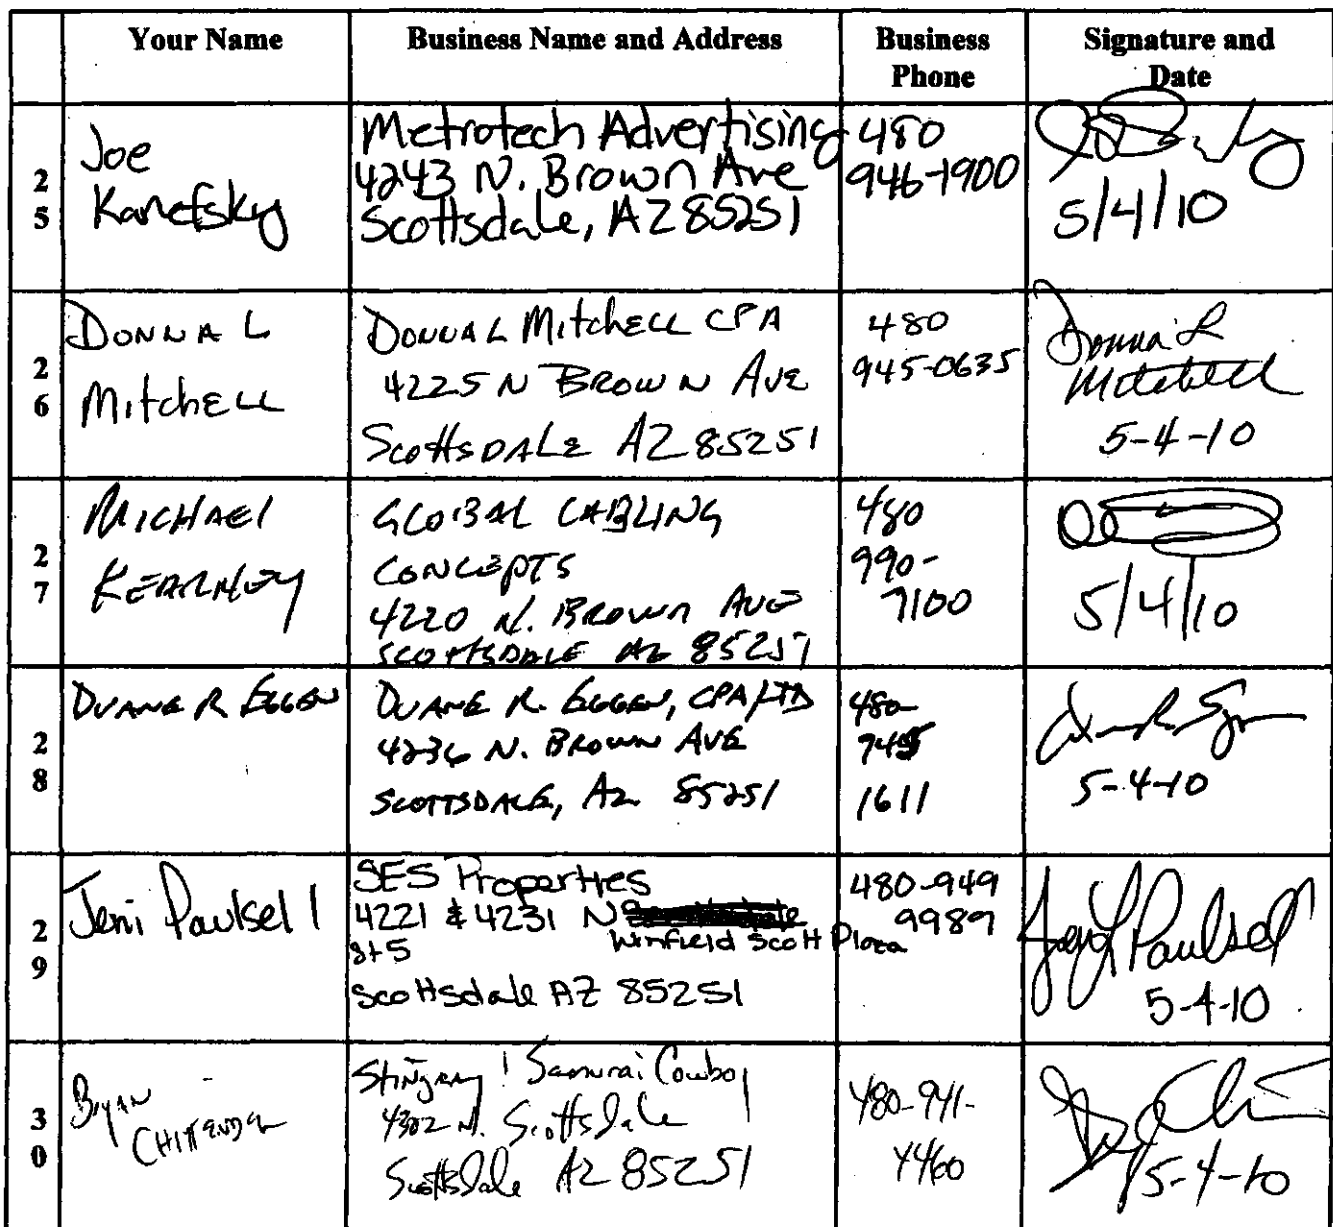 Your Name
Business Name and Address
Business
Phone
Signature and
Date
25
Joe
Kanefsky
Metrotech Advertising
4243 N. Brown Ave
Scottsdale, AZ 85251
480
946-1900
5/4/10
26
DONNA L
MitchELL
DONNA L MitchELL CPA
4225 N BROWN AVE
ScottsDALE AZ 85251
480
945-0635
Donna L
Mitchell
5-4-10
27
MICHAEL
KEARNEY
GLOBAL CABLING
CONCEPTS
4220 N. BROWN AVE
SCOTTSDALE AZ 85251
480
990-
7100
5/4/10
28
DUANE R EGGEN
DUANE R. EGGEN, CPA, LTD
4236 N. BROWN AVE
SCOTTSDALE, AZ 85251
480-
945
1611
5-4-10
29
Jeni Paulsell
SES Properties
4221 & 4231 N
Winfield Scott Plaza
St 5
Scottsdale AZ 85251
480-949
9989
Paulsell
5-4-10
30
Bryan
CHITTENDEN
Stingray! Samurai Cowboy
4302 N. Scottsdale
Scottsdale AZ 85251
480-941-
4460
5-4-10